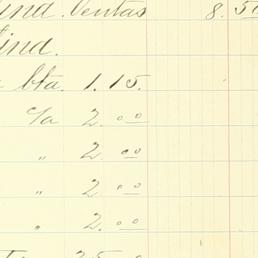 ind. Ventas 8.50
ind.
bta. 1.15.
c/a 2.00
„ 2.00
„ 2.00
„ 2.00